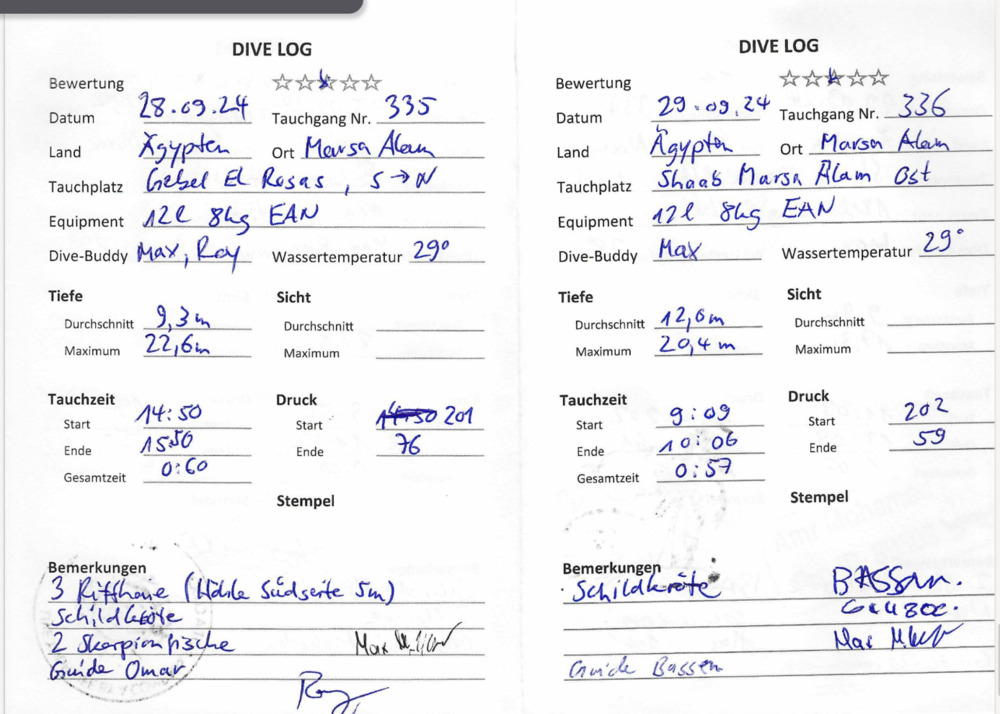 DIVE LOG
Bewertung
Datum 28.09.24 Tauchgang Nr. 335
Land Ägypten Ort Marsa Alam
Tauchplatz Gebel El Rosas, S → N
Equipment 12l 8kg EAN
Dive-Buddy Max, Roy Wassertemperatur 29°
Tiefe Sicht
Durchschnitt 9,3m Durchschnitt
Maximum 22,6m Maximum
Tauchzeit Druck
Start 14:50 Start 14:50 201
Ende 15:50 Ende 76
Gesamtzeit 0:60
Stempel
Bemerkungen
3 Riffhaie (Höhle Südseite 5m)
Schildkröte
2 Skorpionfische Max
Guide Omar
Roy
DIVE LOG
Bewertung
Datum 29.09.24 Tauchgang Nr. 336
Land Ägypten Ort Marsa Alam
Tauchplatz Shaab Marsa Alam Ost
Equipment 12l 8kg EAN
Dive-Buddy Max Wassertemperatur 29°
Tiefe Sicht
Durchschnitt 12,6m Durchschnitt
Maximum 20,4m Maximum
Tauchzeit Druck
Start 9:09 Start 202
Ende 10:06 Ende 59
Gesamtzeit 0:57
Stempel
Bemerkungen
Schildkröte BASSEM.
Max
Guide Bassem